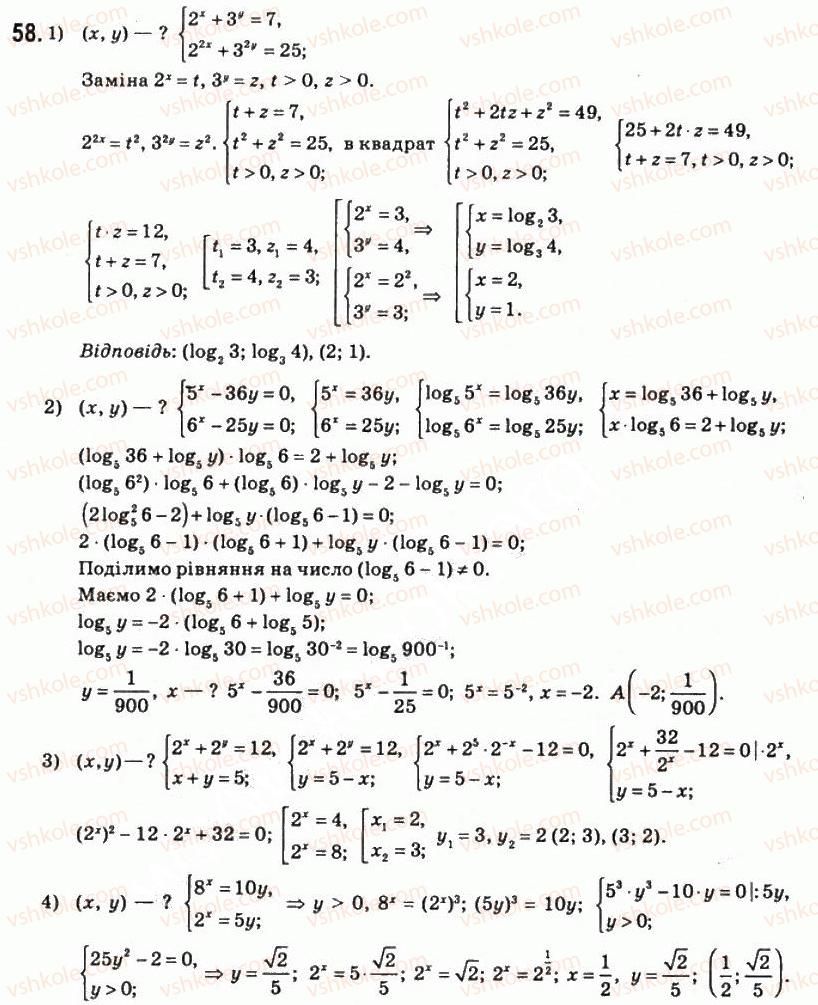 58. 1) (x, y) — ? {2ˣ + 3ʸ = 7, 2²ˣ + 3²ʸ = 25;
Заміна 2ˣ = t, 3ʸ = z, t > 0, z > 0.
2²ˣ = t², 3²ʸ = z². {t + z = 7, t² + z² = 25, t > 0, z > 0; в квадрат {t² + 2tz + z² = 49, t² + z² = 25, t > 0, z > 0; {25 + 2t · z = 49, t + z = 7, t > 0, z > 0;
{t · z = 12, t + z = 7, t > 0, z > 0; [t₁ = 3, z₁ = 4, t₂ = 4, z₂ = 3; [{2ˣ = 3, 3ʸ = 4, ⇒ {2ˣ = 2², 3ʸ = 3; ⇒ [{x = log₂ 3, y = log₃ 4, {x = 2, y = 1.
Відповідь: (log₂ 3; log₃ 4), (2; 1).
2) (x, y) — ? {5ˣ − 36y = 0, 6ˣ − 25y = 0; {5ˣ = 36y, 6ˣ = 25y; {log₅ 5ˣ = log₅ 36y, log₅ 6ˣ = log₅ 25y; {x = log₅ 36 + log₅ y, x · log₅ 6 = 2 + log₅ y;
(log₅ 36 + log₅ y) · log₅ 6 = 2 + log₅ y;
(log₅ 6²) · log₅ 6 + (log₅ 6) · log₅ y − 2 − log₅ y = 0;
(2log₅² 6 − 2) + log₅ y · (log₅ 6 − 1) = 0;
2 · (log₅ 6 − 1) · (log₅ 6 + 1) + log₅ y · (log₅ 6 − 1) = 0;
Поділимо рівняння на число (log₅ 6 − 1) ≠ 0.
Маємо 2 · (log₅ 6 + 1) + log₅ y = 0;
log₅ y = −2 · (log₅ 6 + log₅ 5);
log₅ y = −2 · log₅ 30 = log₅ 30⁻² = log₅ 900⁻¹;
y = 1/900, x — ? 5ˣ − 36/900 = 0; 5ˣ − 1/25 = 0; 5ˣ = 5⁻², x = −2. A(−2; 1/900).
3) (x,y) — ? {2ˣ + 2ʸ = 12, x + y = 5; {2ˣ + 2ʸ = 12, y = 5 − x; {2ˣ + 2⁵ · 2⁻ˣ − 12 = 0, y = 5 − x; {2ˣ + 32/2ˣ − 12 = 0 | · 2ˣ, y = 5 − x;
(2ˣ)² − 12 · 2ˣ + 32 = 0; [2ˣ = 4, 2ˣ = 8; [x₁ = 2, x₂ = 3; y₁ = 3, y₂ = 2 (2; 3), (3; 2).
4) (x, y) — ? {8ˣ = 10y, 2ˣ = 5y; ⇒ y > 0, 8ˣ = (2ˣ)³; (5y)³ = 10y; {5³ · y³ − 10 · y = 0 |: 5y, y > 0;
{25y² − 2 = 0, y > 0; ⇒ y = √2/5; 2ˣ = 5 · √2/5; 2ˣ = √2; 2ˣ = 2^(1/2); x = 1/2, y = √2/5; (1/2; √2/5).